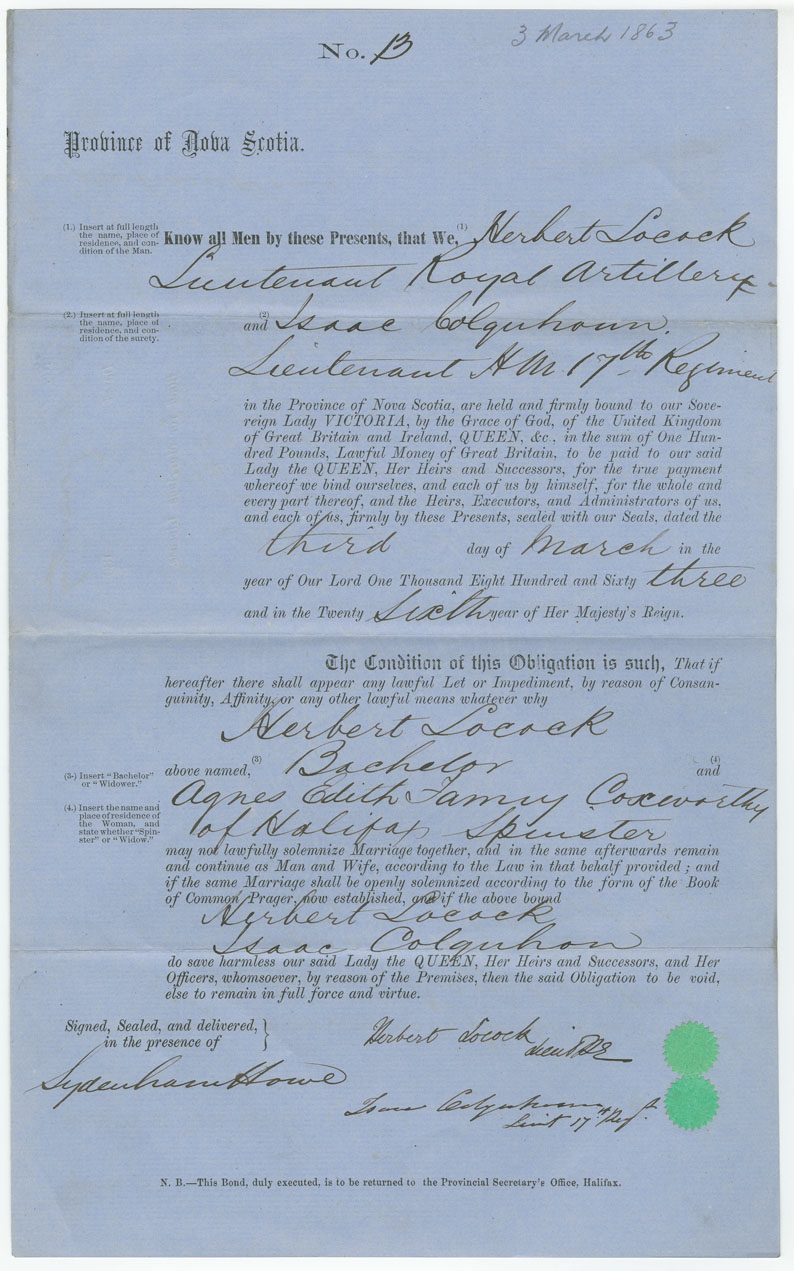 3 March 1863
No. 13
Province of Nova Scotia.
(1.) Insert at full length
the name, place of
residence, and con-
dition of the Man.
Know all Men by these Presents, that We, (1) Herbert Locock
Lieutenant Royal Artillery
(2.) Insert at full length
the name, place of
residence, and con-
dition of the surety.
and (2) Isaac Colquhoun.
Lieutenant H M 17th Regiment
in the Province of Nova Scotia, are held and firmly bound to our Sove-
reign Lady VICTORIA, by the Grace of God, of the United Kingdom
of Great Britain and Ireland, QUEEN, &c., in the sum of One Hun-
dred Pounds, Lawful Money of Great Britain, to be paid to our said
Lady the QUEEN, Her Heirs and Successors, for the true payment
whereof we bind ourselves, and each of us by himself, for the whole and
every part thereof, and the Heirs, Executors, and Administrators of us,
and each of us, firmly by these Presents, sealed with our Seals, dated the
third day of March in the
year of Our Lord One Thousand Eight Hundred and Sixty three
and in the Twenty Sixth year of Her Majesty's Reign.
The Condition of this Obligation is such, That if
hereafter there shall appear any lawful Let or Impediment, by reason of Consan-
guinity, Affinity, or any other lawful means whatever why
Herbert Locock
above named, (3) Bachelor and (4)
(3.) Insert "Bachelor"
or "Widower."
Agnes Edith Fanny Coxworthy
(4.) Insert the name and
place of residence of
the Woman, and
state whether "Spin-
ster" or "Widow."
of Halifax Spinster
may not lawfully solemnize Marriage together, and in the same afterwards remain
and continue as Man and Wife, according to the Law in that behalf provided; and
if the same Marriage shall be openly solemnized according to the form of the Book
of Common Prager, now established, and if the above bound
Herbert Locock
Isaac Colquhon
do save harmless our said Lady the QUEEN, Her Heirs and Successors, and Her
Officers, whomsoever, by reason of the Premises, then the said Obligation to be void,
else to remain in full force and virtue.
Signed, Sealed, and delivered,
in the presence of
Herbert Locock
Lieut RE
Sydenham Howe
Isaac Colquhoun
Lieut 17th Regt.
N. B.—This Bond, duly executed, is to be returned to the Provincial Secretary's Office, Halifax.